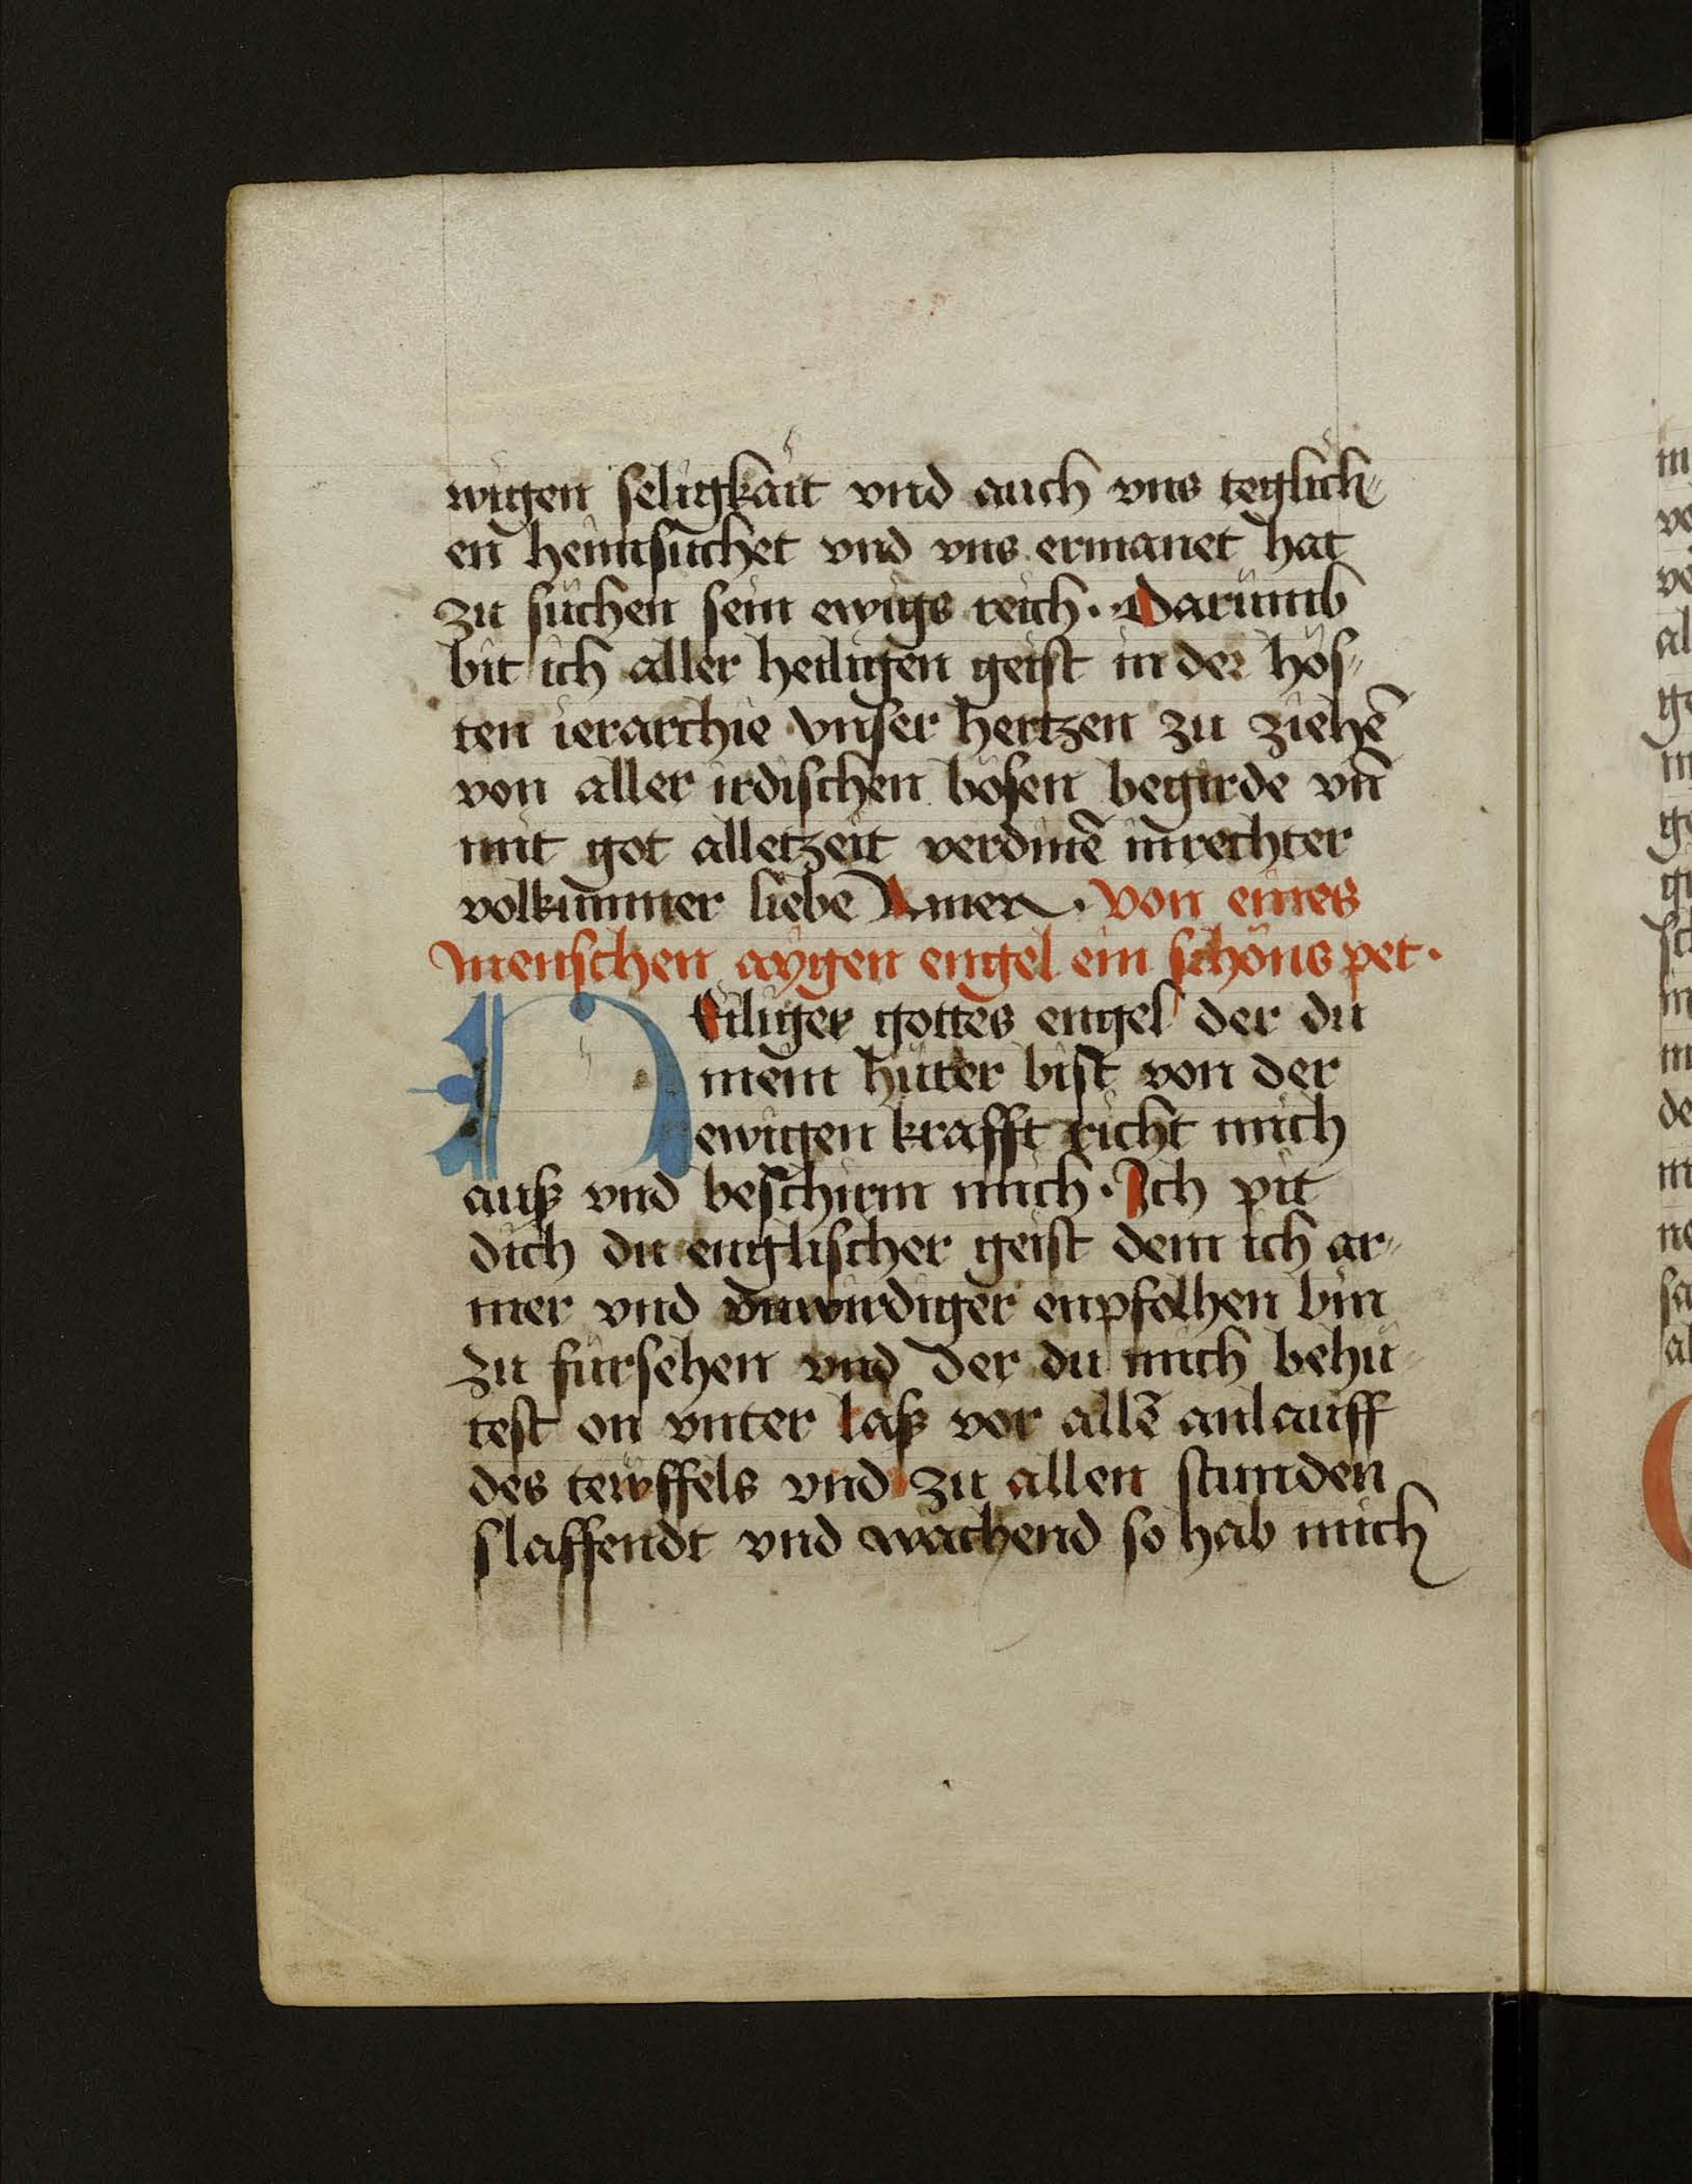 wigen seligkait vnd auch vns teglich⸗
en heimsuchet vnd vns ermanet hat
zu suchen sein ewigs reich · Darumb
bit ich aller heiligen geist in der hös⸗
ten ierarchie vnser hertzen zu ziehē
von aller irdischen bösen begirde vn̄
mit got alletzeit verdinē in rechter
volkummer liebe Amen · von eines
menschen aygen engel ein schöns pet ·
Heiliger gottes engel der du
mein hüter bist von der
ewigen krafft richt mich
auß vnd beschirm mich · Ich pit
dich du englischer geist dem ich ar⸗
mer vnd vnwirdiger enpfolhen bin
zu fürsehen vnd der du mich behü⸗
test on vnter laß vor allē anlauff
des tewffels vnd zu allen stunden
slaffendt vnd wachend so hab mich